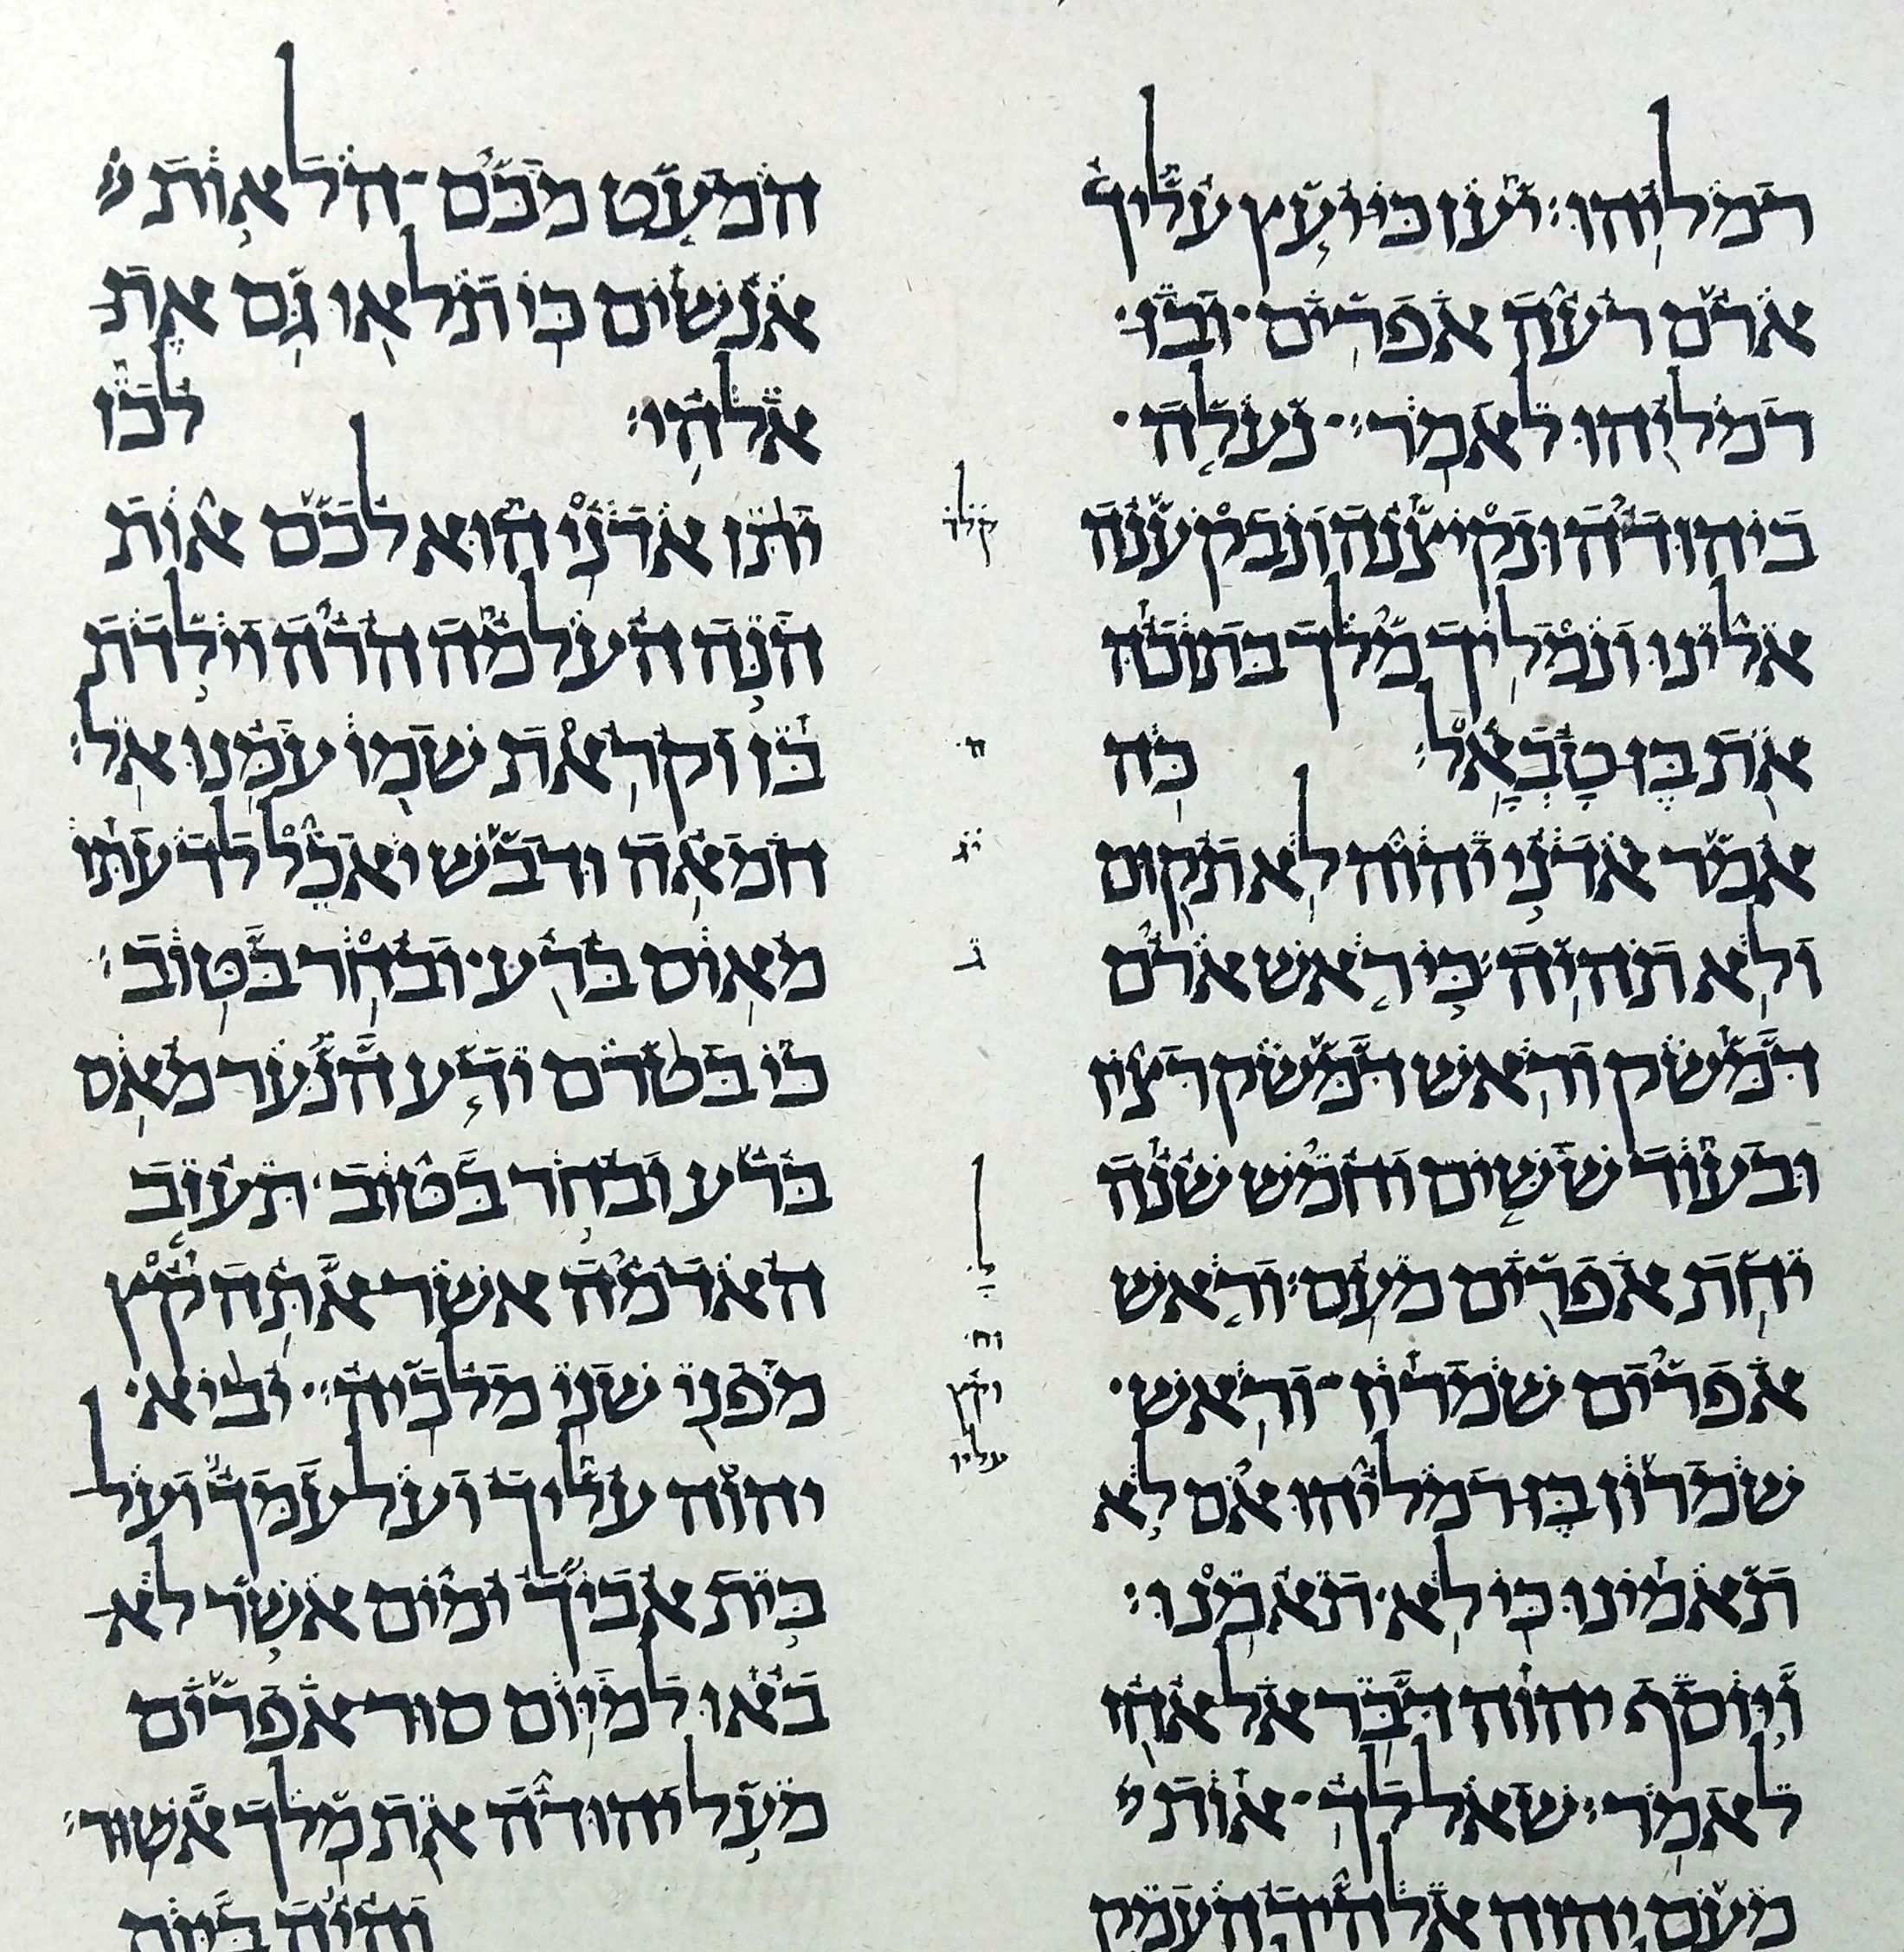 רמליהו׃ יען כי יועץ עליך
ארם רעה אפרים ובן
רמליהו לאמר׃ נעלה
ביהודה ונקיצנה ונבקענה
אלינו ונמליך מלך בתוכה
את בן טבאל׃ כה
אמר אדני יהוה לא תקום
ולא תהיה׃ כי ראש ארם
דמשק וראש דמשק רצין
ובעוד ששים וחמש שנה
יחת אפרים מעם׃ וראש
אפרים שמרון וראש
שמרון בן רמליהו אם לא
תאמינו כי לא תאמנו׃
ויוסף יהוה דבר אל אחז
לאמר׃ שאל לך אות
מעם יהוה אלהיך העמק
ח
יג
ג
ל
וח
וקץ
עליו
המעט מכם הלאות
אנשים כי תלאו גם את
אלהי׃ לכן
יתן אדני הוא לכם אות
הנה העלמה הרה וילדת
בן וקראת שמו עמנו אל׃
חמאה ודבש יאכל לדעתו
מאוס ברע ובחר בטוב׃
כי בטרם ידע הנער מאס
ברע ובחר בטוב תעזב
האדמה אשר אתה קץ
מפני שני מלכיה׃ יביא
יהוה עליך ועל עמך ועל
בית אביך ימים אשר לא
באו למיום סור אפרים
מעל יהודה את מלך אשור׃
והיה ביום